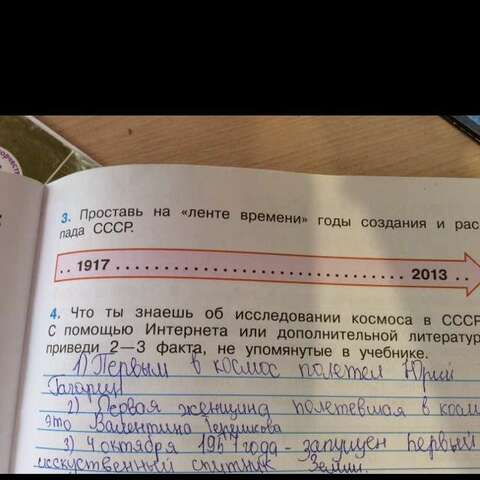 3. Проставь на «ленте времени» годы создания и рас-
пада СССР.
.. 1917 .................................. 2013 ..
4. Что ты знаешь об исследовании космоса в СССР
С помощью Интернета или дополнительной литератур
приведи 2—3 факта, не упомянутые в учебнике.
1) Первым в космос полетел Юрий
Гагарин
2) Первая женщина полетевшая в косм
это Валентина Терешкова
3) 4 октября 1957 года - запущен первый
исскуственный спутник Земли.